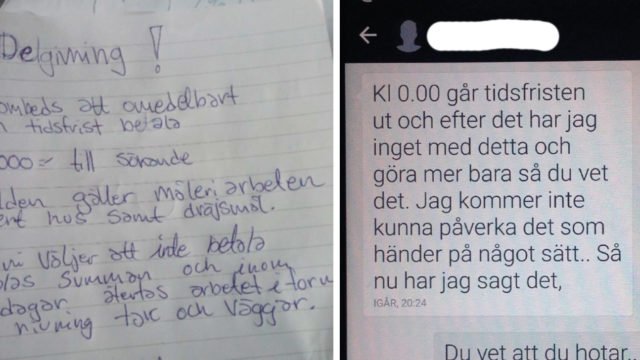 Delgivning!
ombeds att omedelbart
tidsfrist betala
000:- till sökande
lden gäller måleriarbeten
ert hus samt dröjsmål.
ni väljer att inte betala
summan och inom
dagar återtas arbetet i form
rivning tak och väggar.
Kl 0.00 går tidsfristen
ut och efter det har jag
inget med detta och
göra mer bara så du vet
det. Jag kommer inte
kunna påverka det som
händer på något sätt.. Så
nu har jag sagt det,
IGÅR, 20:24
Du vet att du hotar..